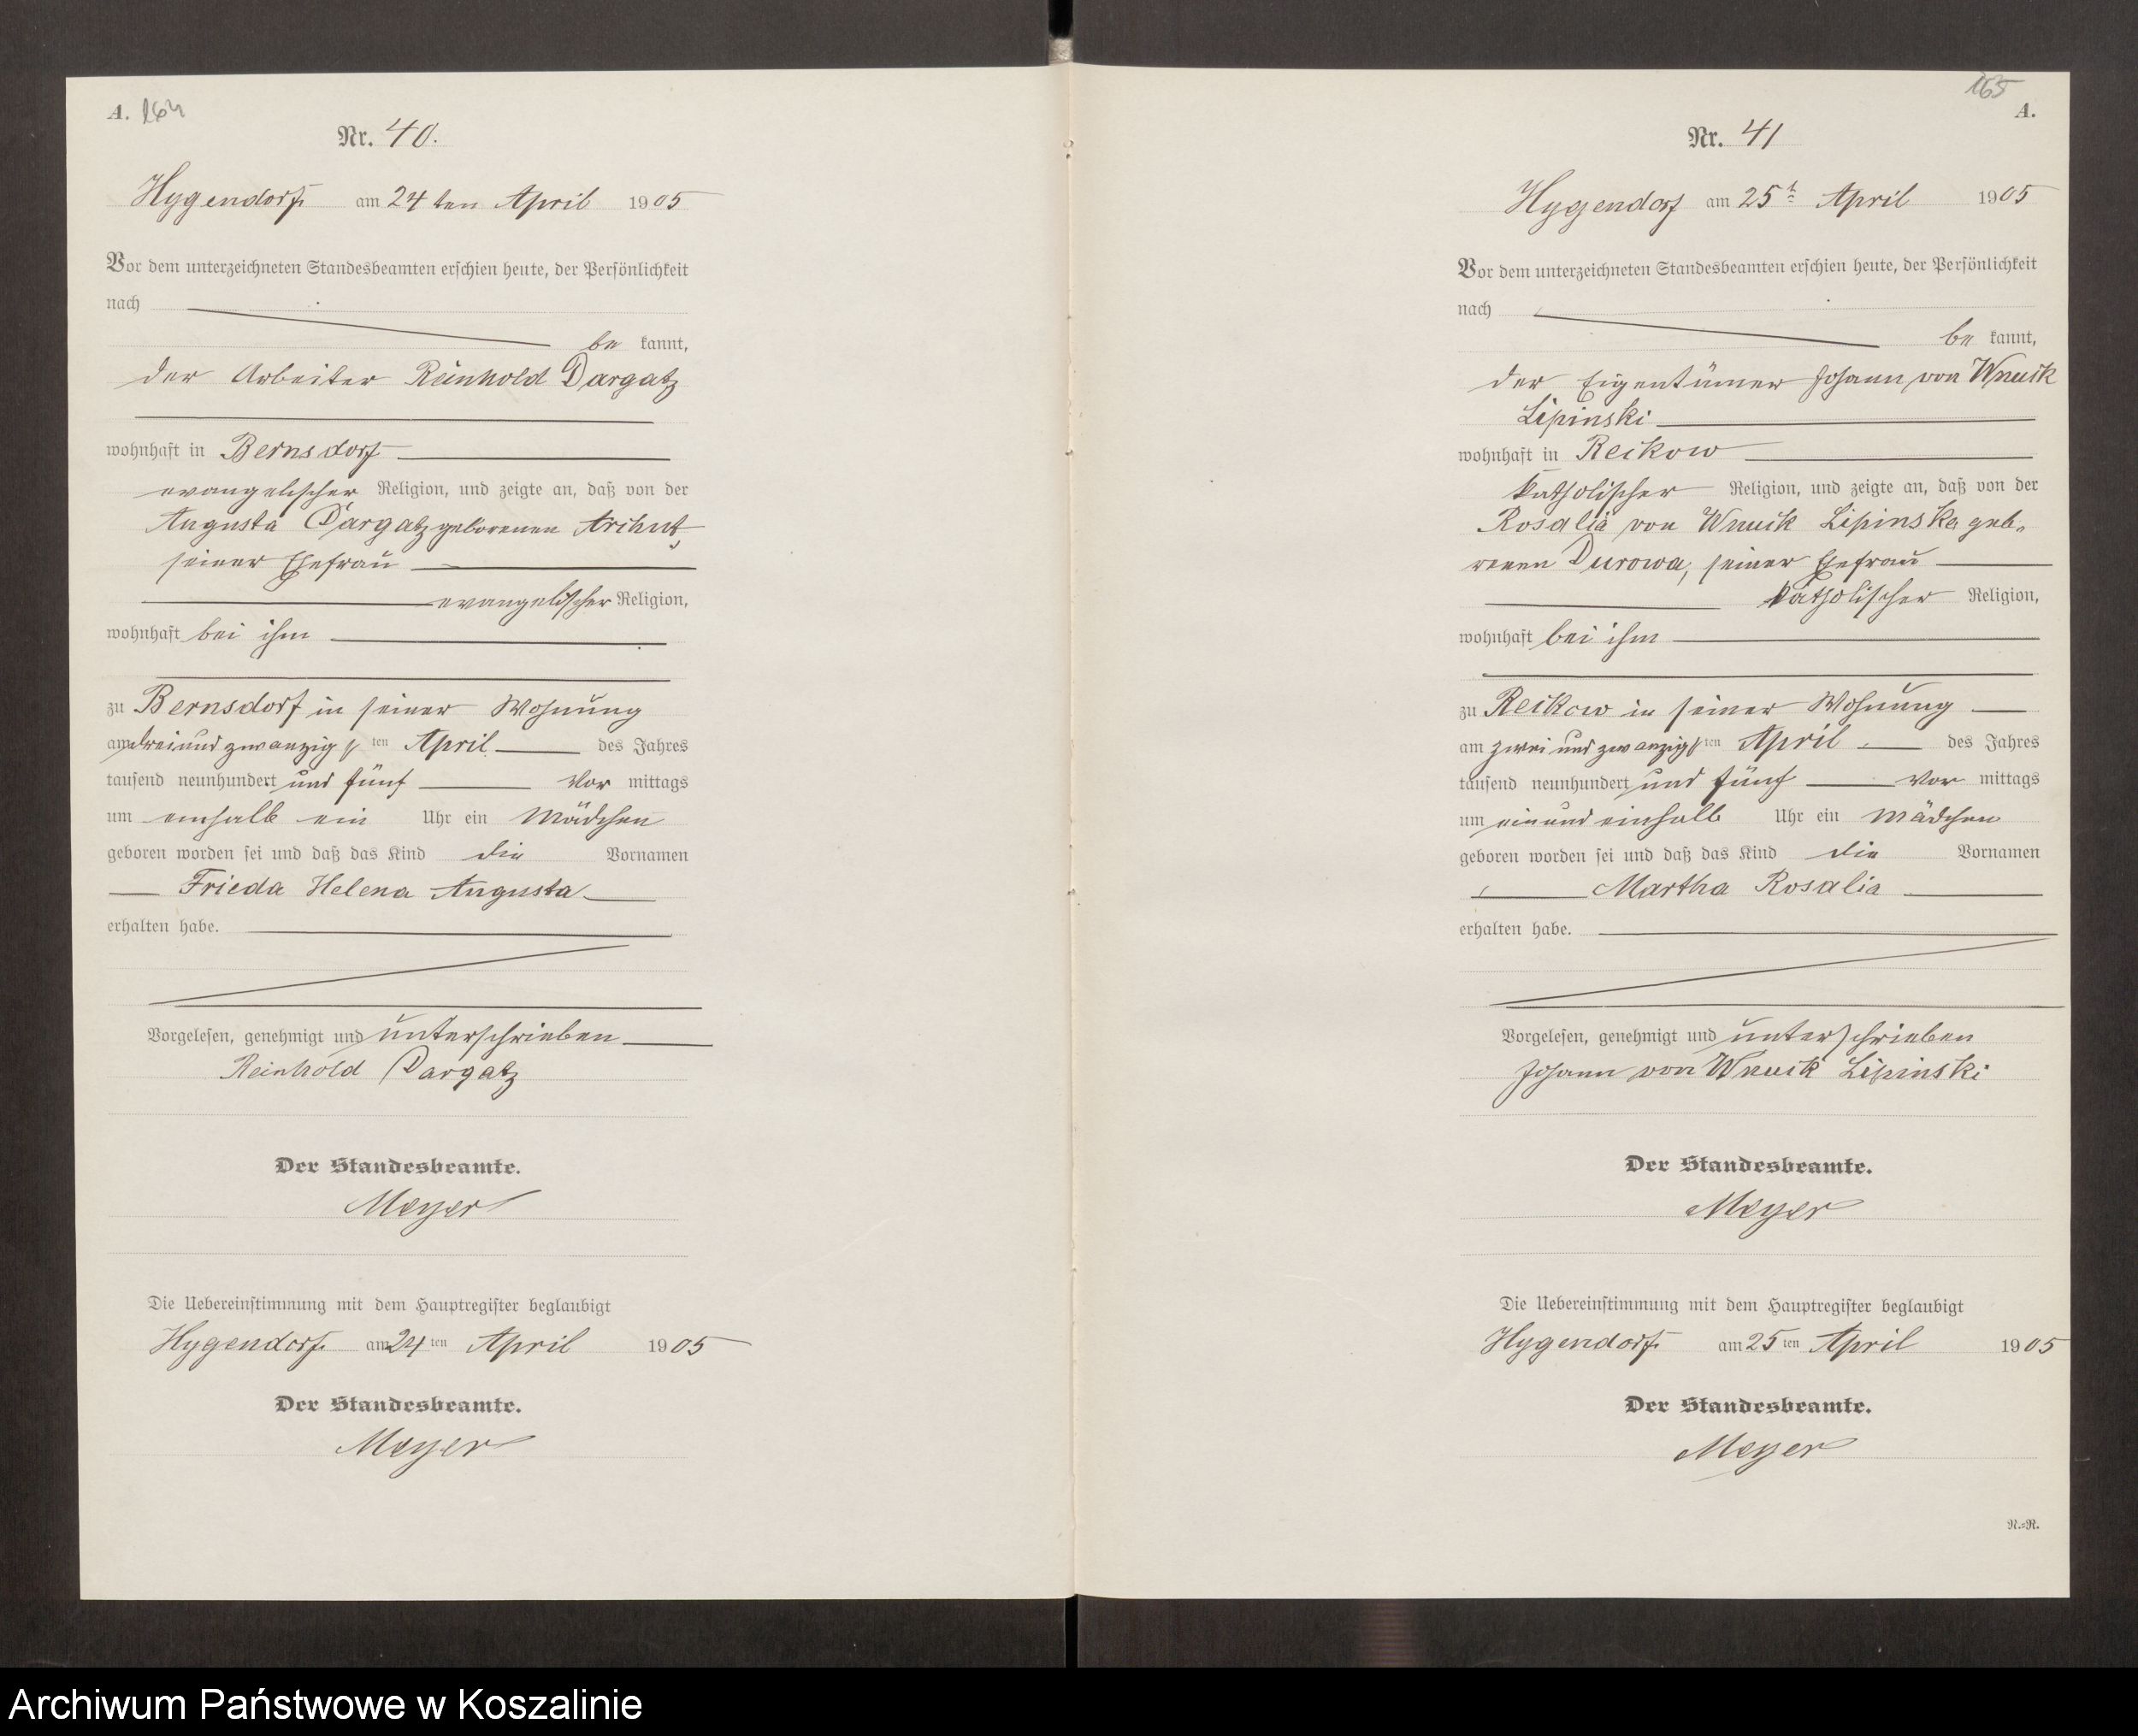 A. 164
Nr. 40.
Hygendorf am 24 ten April 1905
Vor dem unterzeichneten Standesbeamten erschien heute, der Persönlichkeit
nach
be kannt,
der Arbeiter Reinhold Dargatz
wohnhaft in Bernsdorf
evangelischer Religion, und zeigte an, daß von der
Augusta Dargatz geborenen Arihut,
seiner Ehefrau
evangelischer Religion,
wohnhaft bei ihm
zu Bernsdorf in seiner Wohnung
am drei und zwanzigsten April des Jahres
tausend neunhundert und fünf Vor mittags
um einhalb ein Uhr ein Mädchen
geboren worden sei und daß das Kind die Vornamen
Frieda Helena Augusta
erhalten habe.
Vorgelesen, genehmigt und unterschrieben
Reinhold Dargatz
Der Standesbeamte.
Meyer
Die Uebereinstimmung mit dem Hauptregister beglaubigt
Hygendorf am 24ten April 1905
Der Standesbeamte.
Meyer
165
A.
Nr. 41
Hygendorf am 25t April 1905
Vor dem unterzeichneten Standesbeamten erschien heute, der Persönlichkeit
nach
be kannt,
der Eigentümer Johann von Wnuck
Lipinski
wohnhaft in Reikow
katholischer Religion, und zeigte an, daß von der
Rosalia von Wnuck Lipinska geb-
renen Durowa, seiner Ehefrau
katholischer Religion,
wohnhaft bei ihm
zu Reikow in seiner Wohnung
am zwei und zwanzigsten April des Jahres
tausend neunhundert und fünf Vor mittags
um ein und einhalb Uhr ein Mädchen
geboren worden sei und daß das Kind die Vornamen
Martha Rosalia
erhalten habe.
Vorgelesen, genehmigt und unterschrieben
Johann von Wnuck Lipinski
Der Standesbeamte.
Meyer
Die Uebereinstimmung mit dem Hauptregister beglaubigt
Hygendorf am 25ten April 1905
Der Standesbeamte.
Meyer
N.=R.
Archiwum Państwowe w Koszalinie